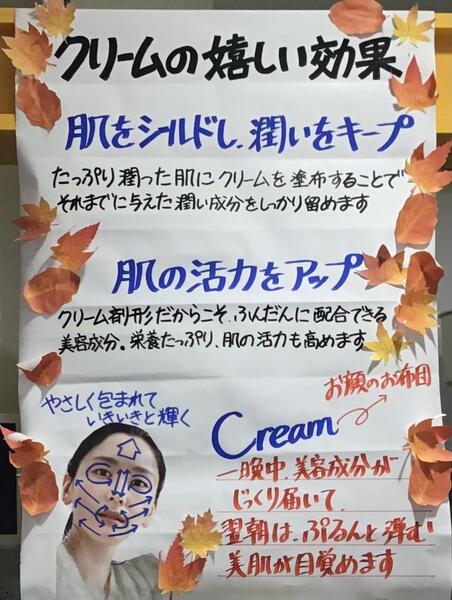 クリームの嬉しい効果
肌をシールドし、潤いをキープ
たっぷり潤った肌にクリームを塗布することで
それまでに与えた潤い成分をしっかり留めます
肌の活力をアップ
クリーム剤形だからこそ、ふんだんに配合できる
美容成分。栄養たっぷり、肌の活力も高めます
お顔のお布団
やさしく包まれて
いきいきと輝く
Cream
一晩中、美容成分が
じっくり届いて、
翌朝は、ぷるんと弾む
美肌が目覚めます